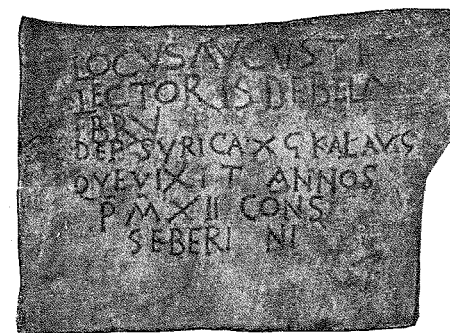 LOCVS AVGVSTI
LECTORIS DE BELA
BRV
DEP SVRICA XG KAL AVG
QVE VIXIT ANNOS
P M XII CONS
SEBERI NI